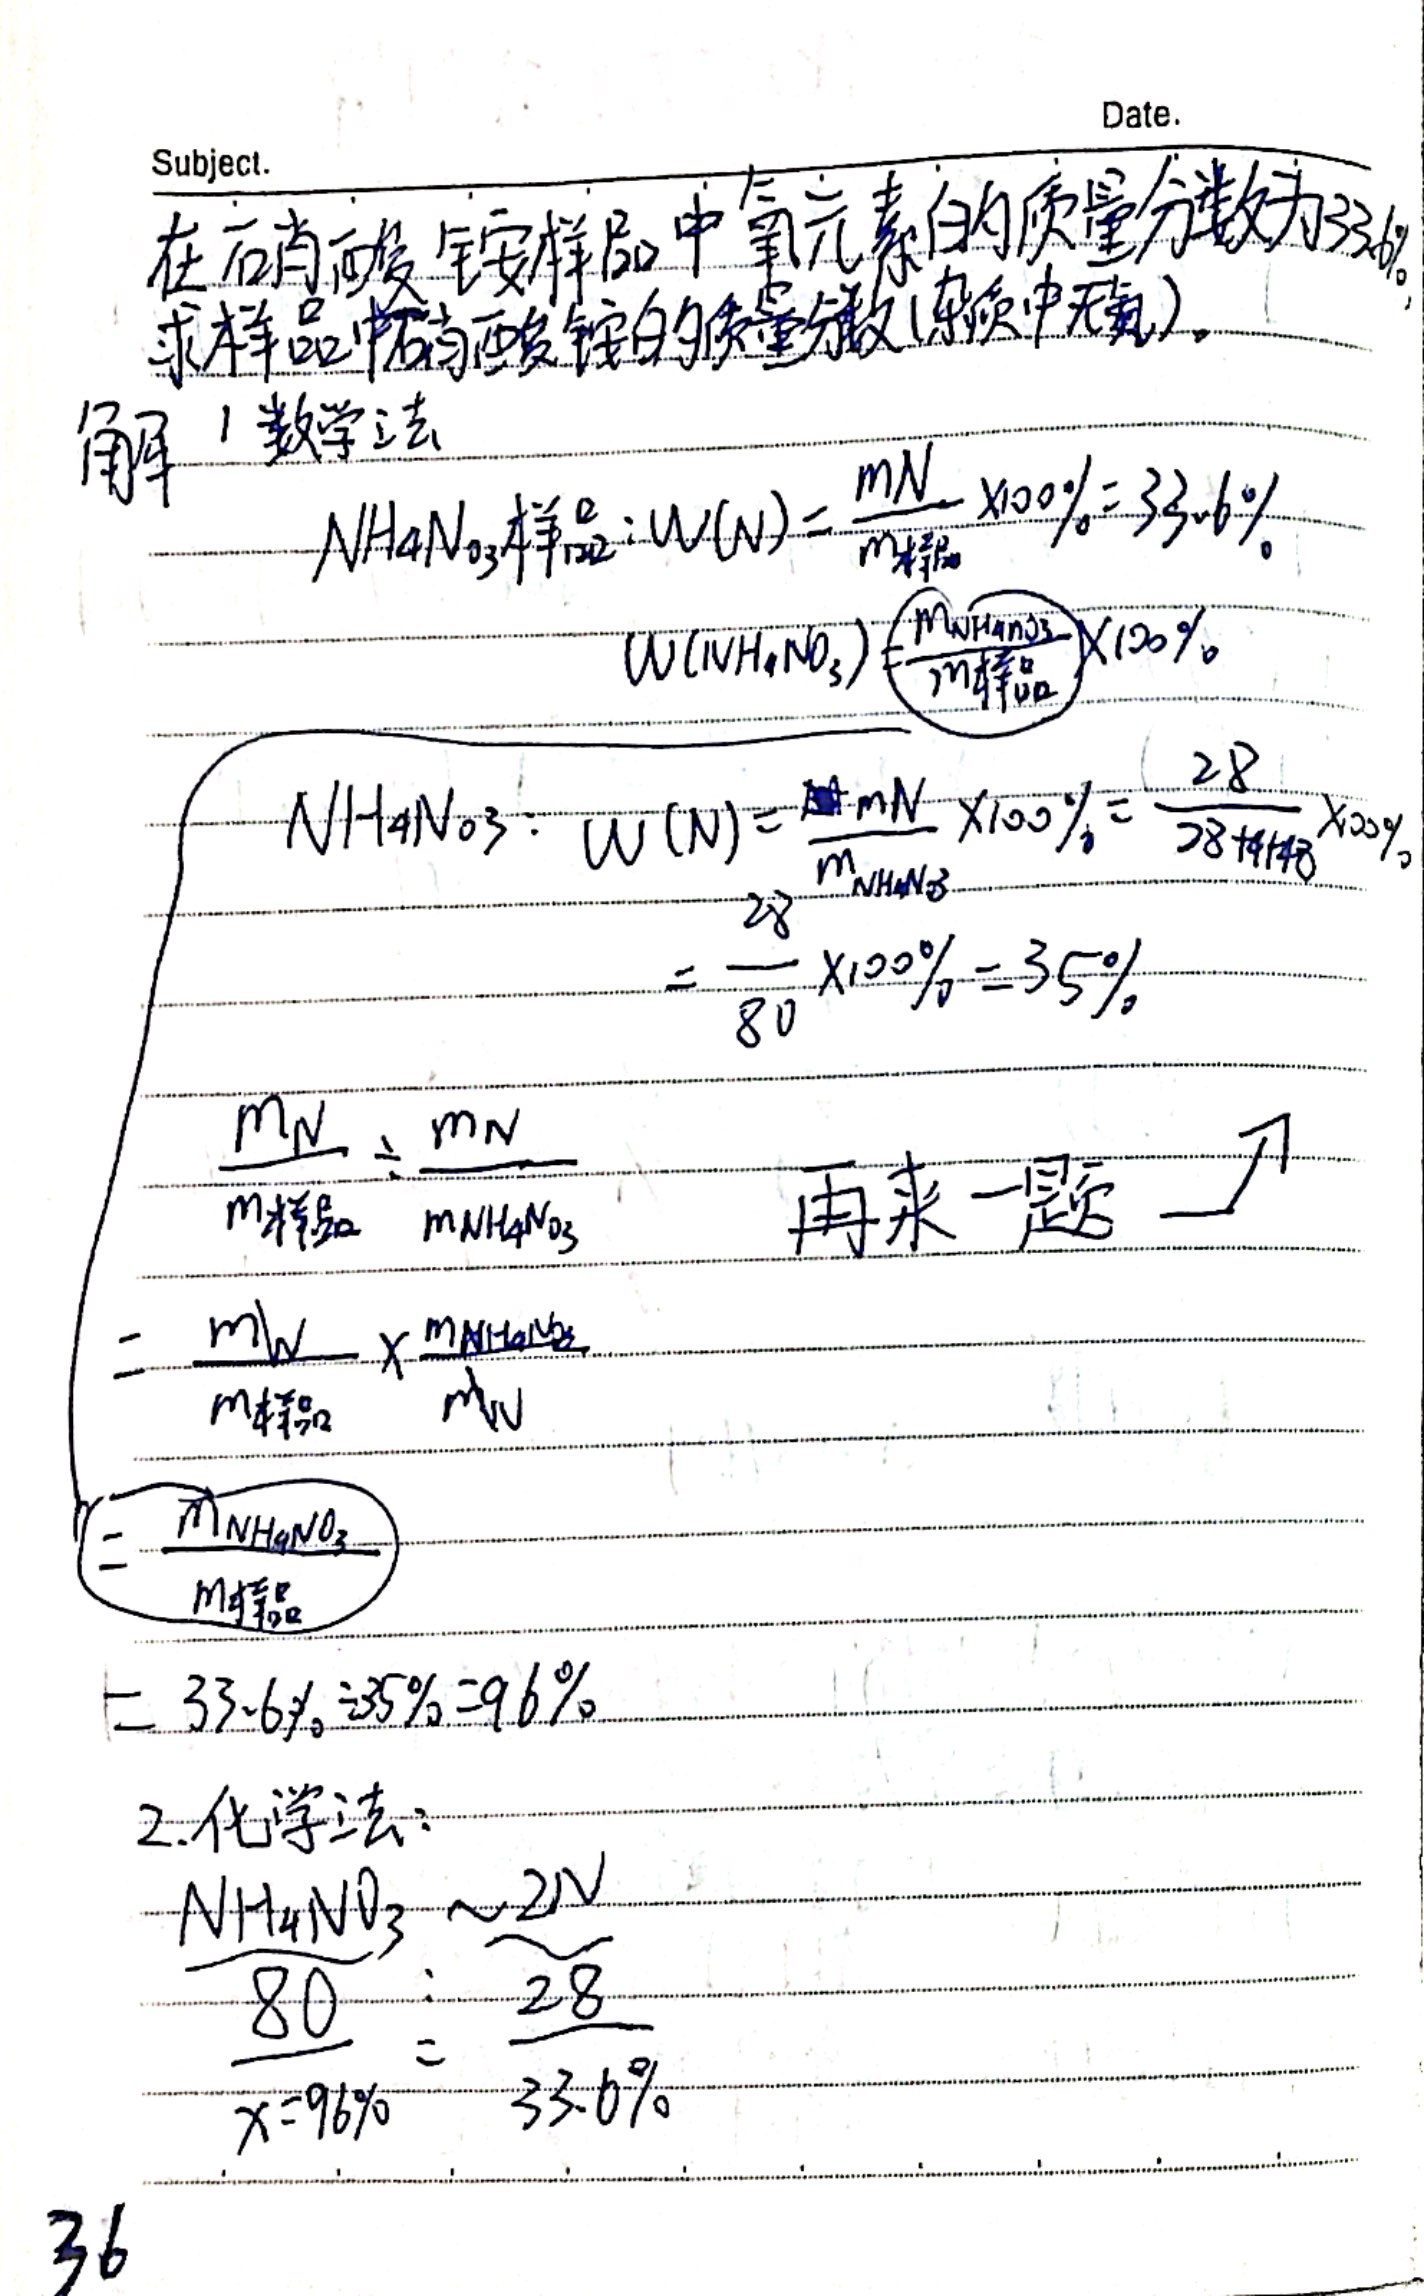 Date.
Subject.
在硝酸铵样品中氮元素的质量分数为33.6%,
求样品中硝酸铵的质量分数(杂质中无氮)。
解 1 数学法
NH4NO3样品:W(N)=mN/m样品×100%=33.6%
W(NH4NO3)=mNH4NO3/m样品×100%
NH4NO3: W(N)=mN/mNH4NO3×100%=28/28+4+48×100%
=28/80×100%=35%
mN/m样品÷mN/mNH4NO3
再来一题
=mN/m样品×mNH4NO3/mN
=mNH4NO3/m样品
=33.6%÷35%=96%
2.化学法:
NH4NO3~2N
80 : 28
x=96% = 33.6%
36